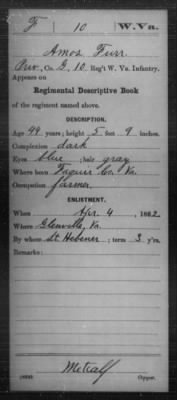 F 10 W. Va.
Amos Furr
Pvr., Co. G, 10 Reg't W. Va. Infantry.
Appears on
Regimental Descriptive Book
of the regiment named above.
DESCRIPTION.
Age 44 years; height 5 feet 9 inches.
Complexion dark
Eyes blue; hair gray
Where born Faquir Co. Va.
Occupation farmer
ENLISTMENT.
When Apr. 4, 1862
Where Glenville, Va.
By whom Lt Hebener; term 3 y'rs.
Remarks:
Metcalf
Copyist.